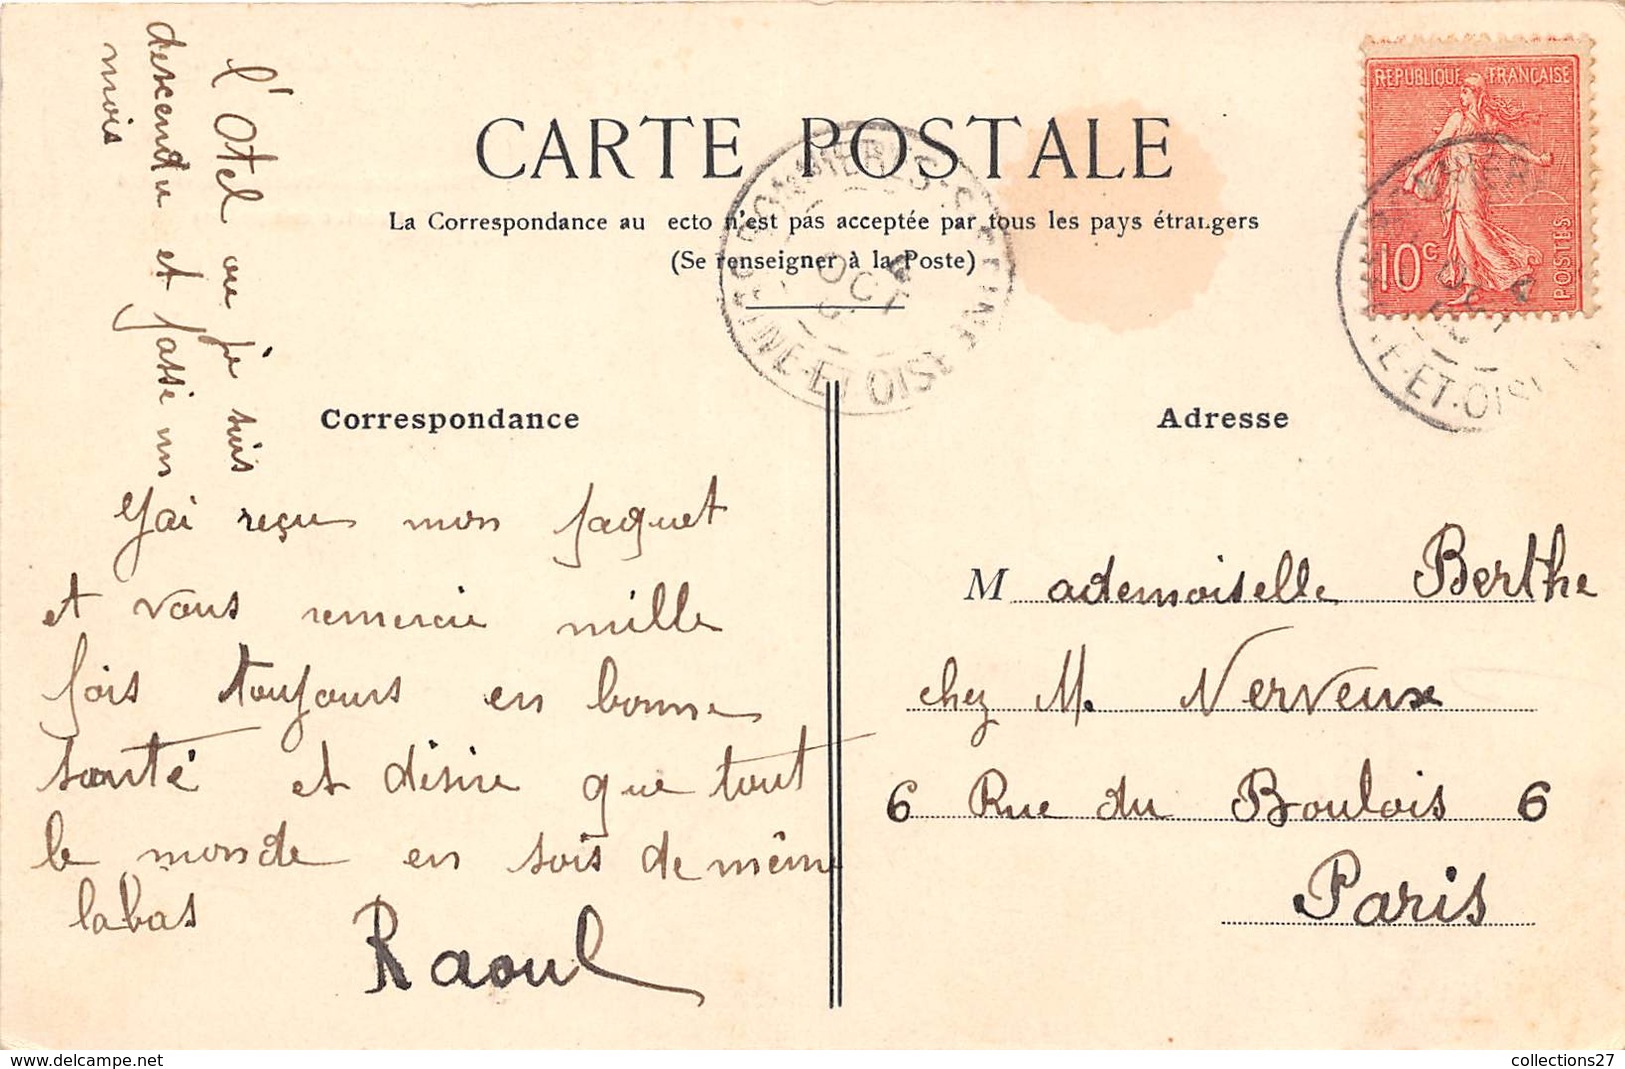 l'Otel ou je suis
descendu et passé un
mois
CARTE POSTALE
La Correspondance au ecto n'est pas acceptée par tous les pays étrangers
(Se renseigner à la Poste)
REPUBLIQUE FRANÇAISE
10c
POSTES
OCT
ET-OISE
ET-OISE
Correspondance
Adresse
J'ai reçu mon paquet
et vous remercie mille
fois toujours en bonne
santé et désire que tout
le monde en sois de même
labas
Raoul
Mademoiselle Berthe
chez M. Nerveux
6 Rue du Boulois 6
Paris
collections27